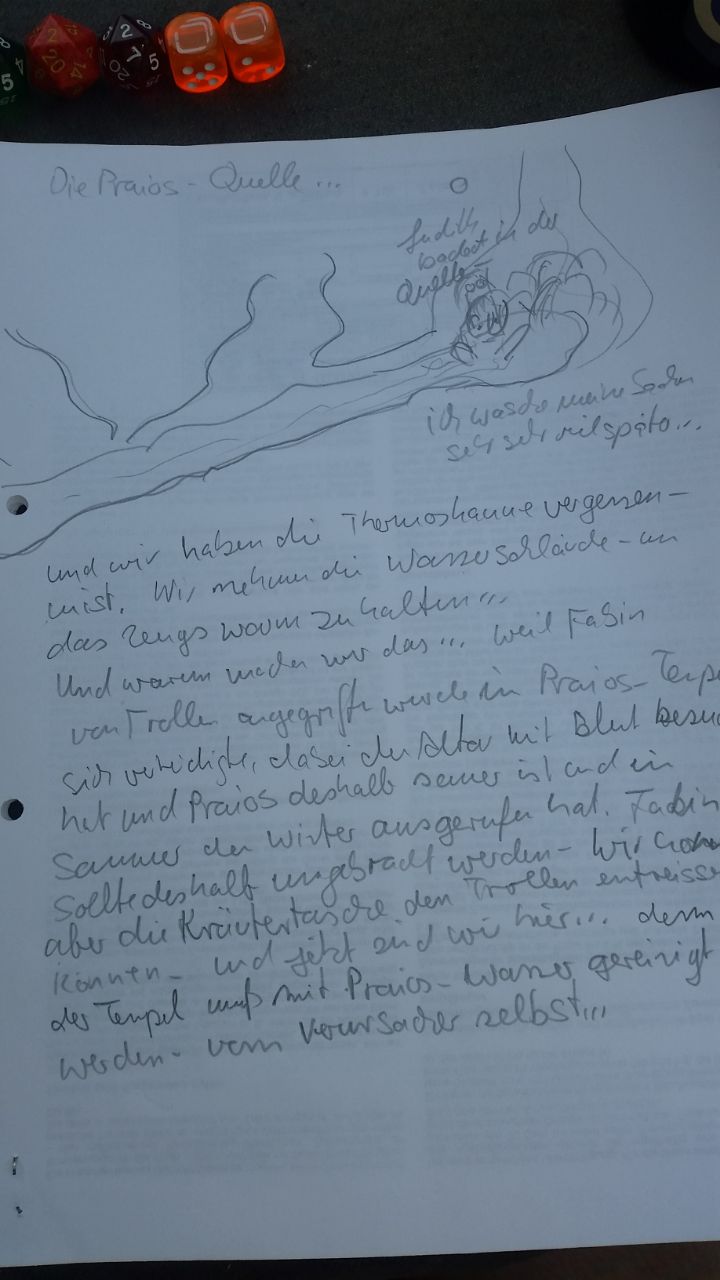 Die Praios - Quelle...
Judith
badet in der
Quelle -
ich wasche meine Sachen
sehr sehr viel später...
und wir haben die Thermoskanne vergessen -
mist. Wir nehmen die Wasserschläuche - um
das Zeugs warm zu halten...
Und warum machen wir das... weil Fabin
von Trollen angegriffen wurde im Praios - Tempel
sich verteidigte, dabei den Altar mit Blut
hat und Praios deshalb sauer ist und im
Sommer den Winter ausgerufen hat. Fabin
Sollte deshalb umgebracht werden - Wir
aber die Kräutertasche den Trollen entreissen
können - und jetzt sind wir hier... denn
der Tempel muß mit Praios - Wasser gereinigt
werden - vom Verursacher selbst...